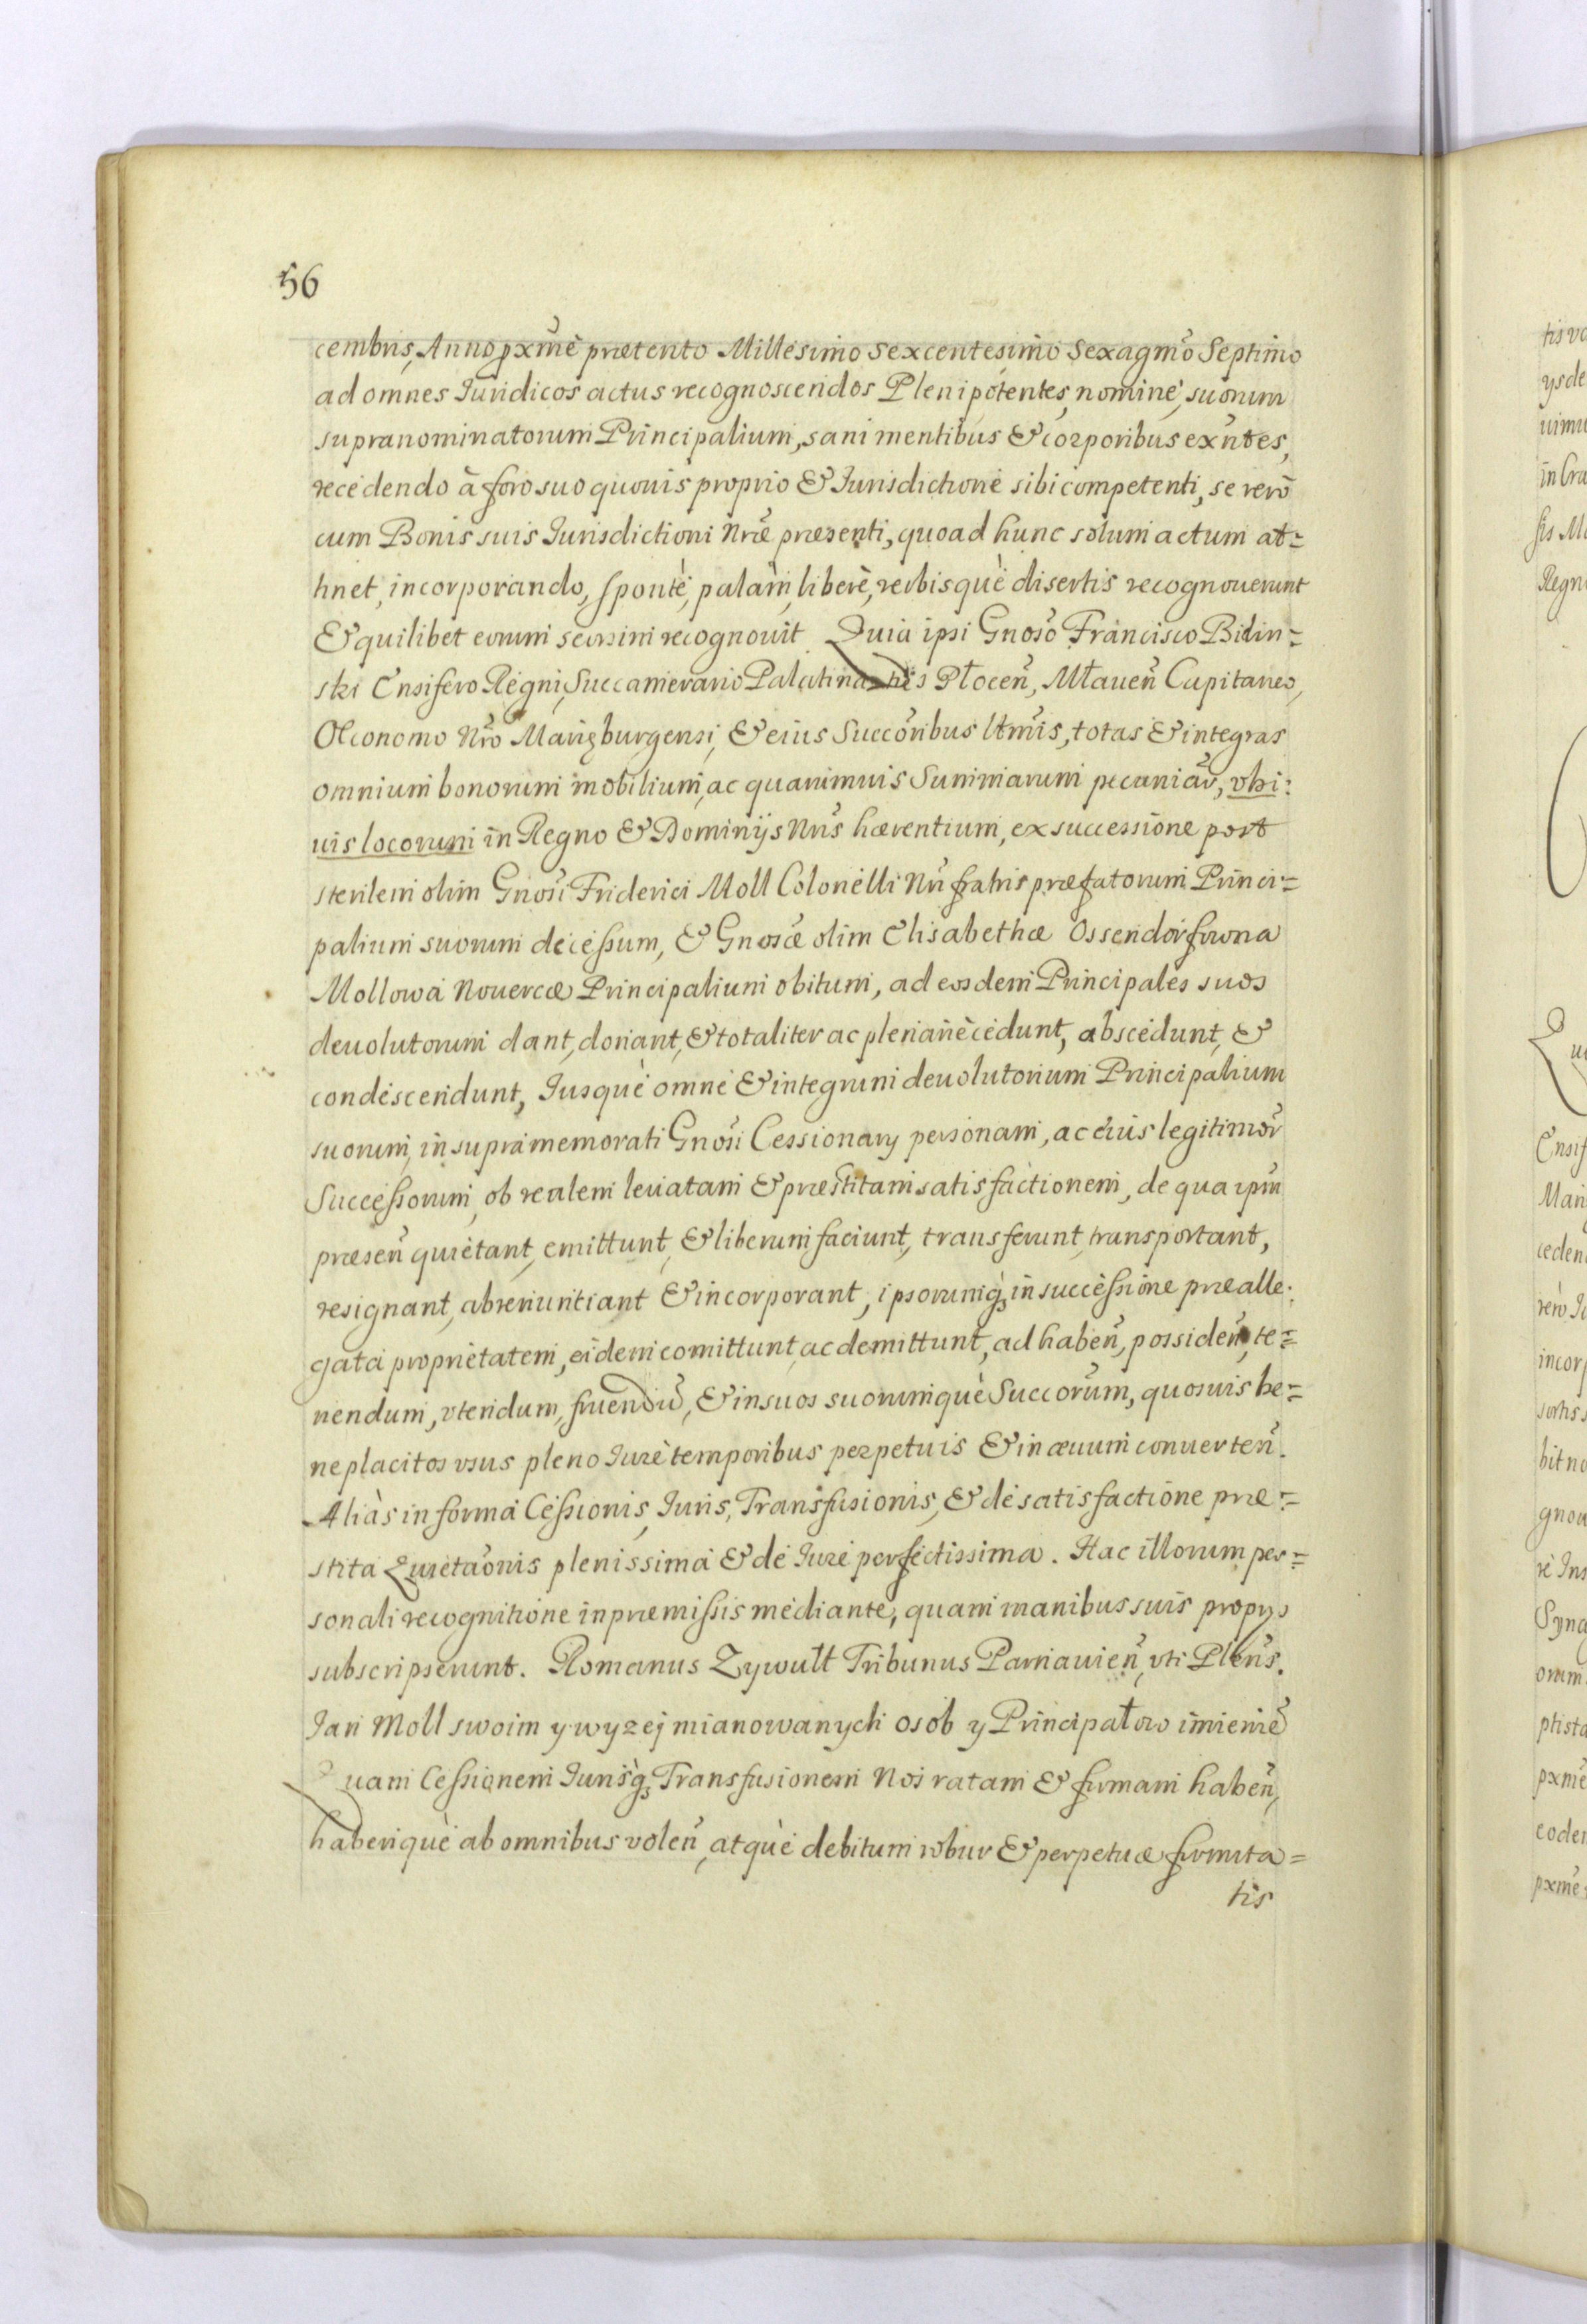 56
cembris, Anno pxmẽ prætento Millesimo Sexcentesimo Sexagmõ Septimo
ad omnes Juridicos actus recognoscendos Plenipotentes, nomine, suorum
supranominatorum Principalium, sani mentibus & corporibus exñtes,
recedendo à foro suo quouis proprio & Jurisdictione sibi competenti, se verò
cum Bonis suis Jurisdictioni Nræ præsenti, quoad hunc solum actum at=
tinet, incorporando, sponte, palàm, liberè, verbisquè disertis recognouerunt
& quilibet eorum seorsim recognouit Quia ipsi Gnoso Francisco Bilin=
ski Ensifero Regni, Succamerario Palatinatus Płoceñ, Mławeñ Capitaneo,
Oeconomo Nrõ Marięburgensi, & eius Succoribus ltmis, totas & integras
omnium bonorum mobilium, ac quarumuis Summarum pecuniar, vbi:
uis locorum in Regno & Dominijs Nris hærentium, ex successione post
sterilem olim Gnosi Friderici Moll Colonelli Nri fratris præfatorum Princi=
palium suorum decessum, & Gnosæ olim Elisabethæ Ossendorfowna
Mollowa Nouercæ Principalium obitum, ad eosdem Principales suos
deuolutorum dant, donant, & totaliter ac plenariè cedunt, abscedunt, &
condescendunt, Jusquè omne & integrum deuolutorium Principalium
suorum, in supramemorati Gnosi Cessionarij personam, ac eius legitimor
Successorum, ob realem leuatam & præstitam satisfactionem, de qua ipm
præseñ quietant, emittunt, & liberum faciunt, transferunt, transportant,
resignant, abrenuntiant & incorporant, ipsorumq; in successione prealle:
gata proprietatem, eidem comittunt, ac demittunt, ad habeñ, possideñ, te=
nendum, vtendum, fruendũ, & in suos suorumquè Succorum, quosuis be=
neplacitos vsus pleno Jure temporibus perpetuis & in æuum conuerteñ.
Aliàs in forma Cessionis, Juris, Transfusionis, & de satisfactione præ=
stita Quietaonis plenissima & de Jure perfectissima. Hac illorum per=
sonali recognitione in præmissis mediante, quam manibus suis proprijs
subscripserunt. Romanus Zywułt Tribunus Parnauieñ, vti Pleñs.
Jan Moll swoim y wyzej mianowanych osob y Principałow imienie
Quam Cessionem Jurisq; Transfusionem Nos ratam & firmam habeñ,
haberiquè ab omnibus voleñ, atquè debitum robur & perpetuæ firmita=
tis